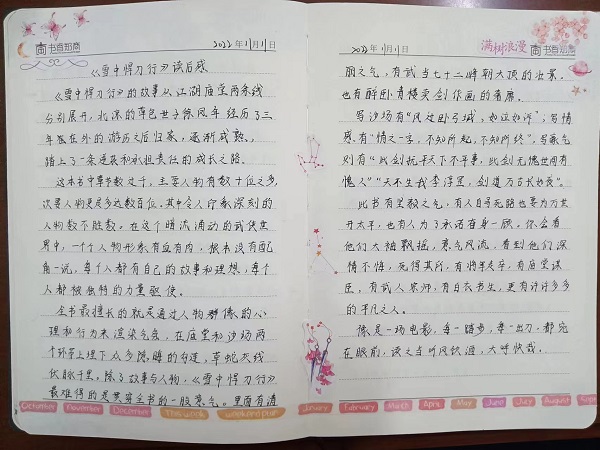 书香知商
2022年1月1日
《雪中悍刀行》读后感
《雪中悍刀行》的故事从江湖庙堂两条线
分别展开,北凉的草包世子徐凤年经历了三
年在外的游历之后归家,逐渐成熟,
踏上了一条逐
和承担责任的成长之路。
这本书中章节数过千,主要人物有数十位之多,
次要人物更是多达数百位。其中令人印象深刻的
人物数不胜数。在这个暗流涌动的武侠世
界中,一个个人物形象有血有肉,根本没有配
角一说,每个人都有自己的故事和理想,每个
人都被独特的力量驱使。
全书最擅长的就是通过人物群像的心
理和行为来渲染气氛,在庙堂和沙场两
个环节上埋下众多隐晦的勾连,草蛇灰线
伏脉千里。除了故事与人物,《雪中悍刀行》
最难得的是贯穿全书的一股豪气。里面有清
October
November
December
This week
weekend plan
满树浪漫
书香知商
2022年1月1日
丽之气,有武当七十二峰朝大顶的壮景,
也有醉卧青楼卖剑作画的奢靡。
写沙场有“风过卧弓城,如泣如诉”,写情
感有“情之一字,不知所起,不知所终”,写豪气
则有“我剑抚平天下不平事,此剑无愧世间有
愧人”“天不生我李淳罡,剑道万古长如夜”。
此书有坚毅之气,有人自骂死赔也要为万世
开太平,也有人为了承诺奋身一顾。你会看
他们大袖飘摇,意气风流,看到他们深
情不悔,死得其所,有将军老卒,有庙堂谋
臣,有武人宗师,有白衣书生,更有许许多多
的平凡之人。
像是一场电影,每一踏步,每一出刀,都宛
在眼前,读之当听风饮酒,大呼快哉。
January
February
March
April
May
June
July
August
Sep